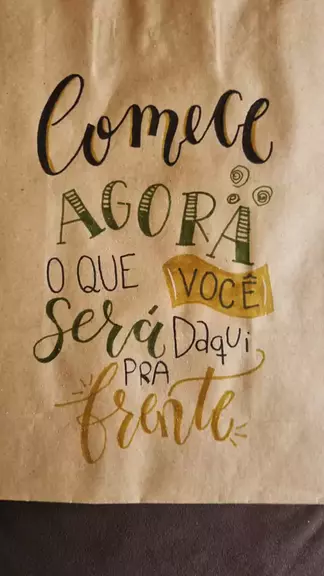 Comece
AGORA
O QUE VOCÊ
Será Daqui
PRA
frente